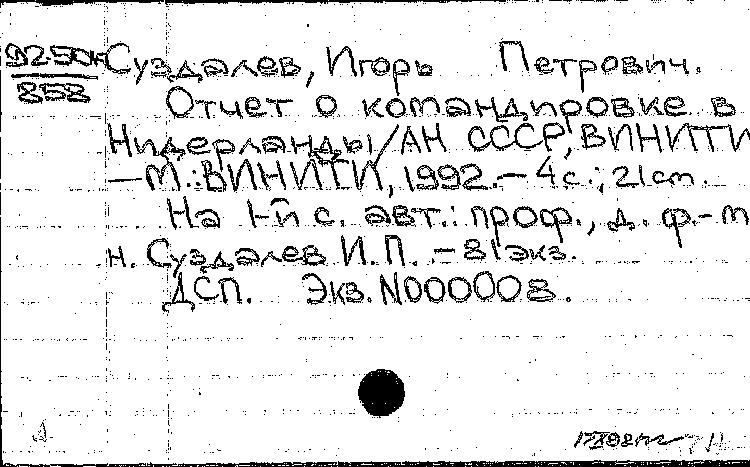 Суздалев, Игорь Петрович.
858
Отчет о командировке в
Нидерланды/АН СССР, ВИНИТИ
—М.: ВИНИТИ, 1992.—4с.; 21см.
На 1-й с. авт.: проф., д. ф.-м
н. Суздалев И.П. —81экз.
ДСП. Экз. N000008.